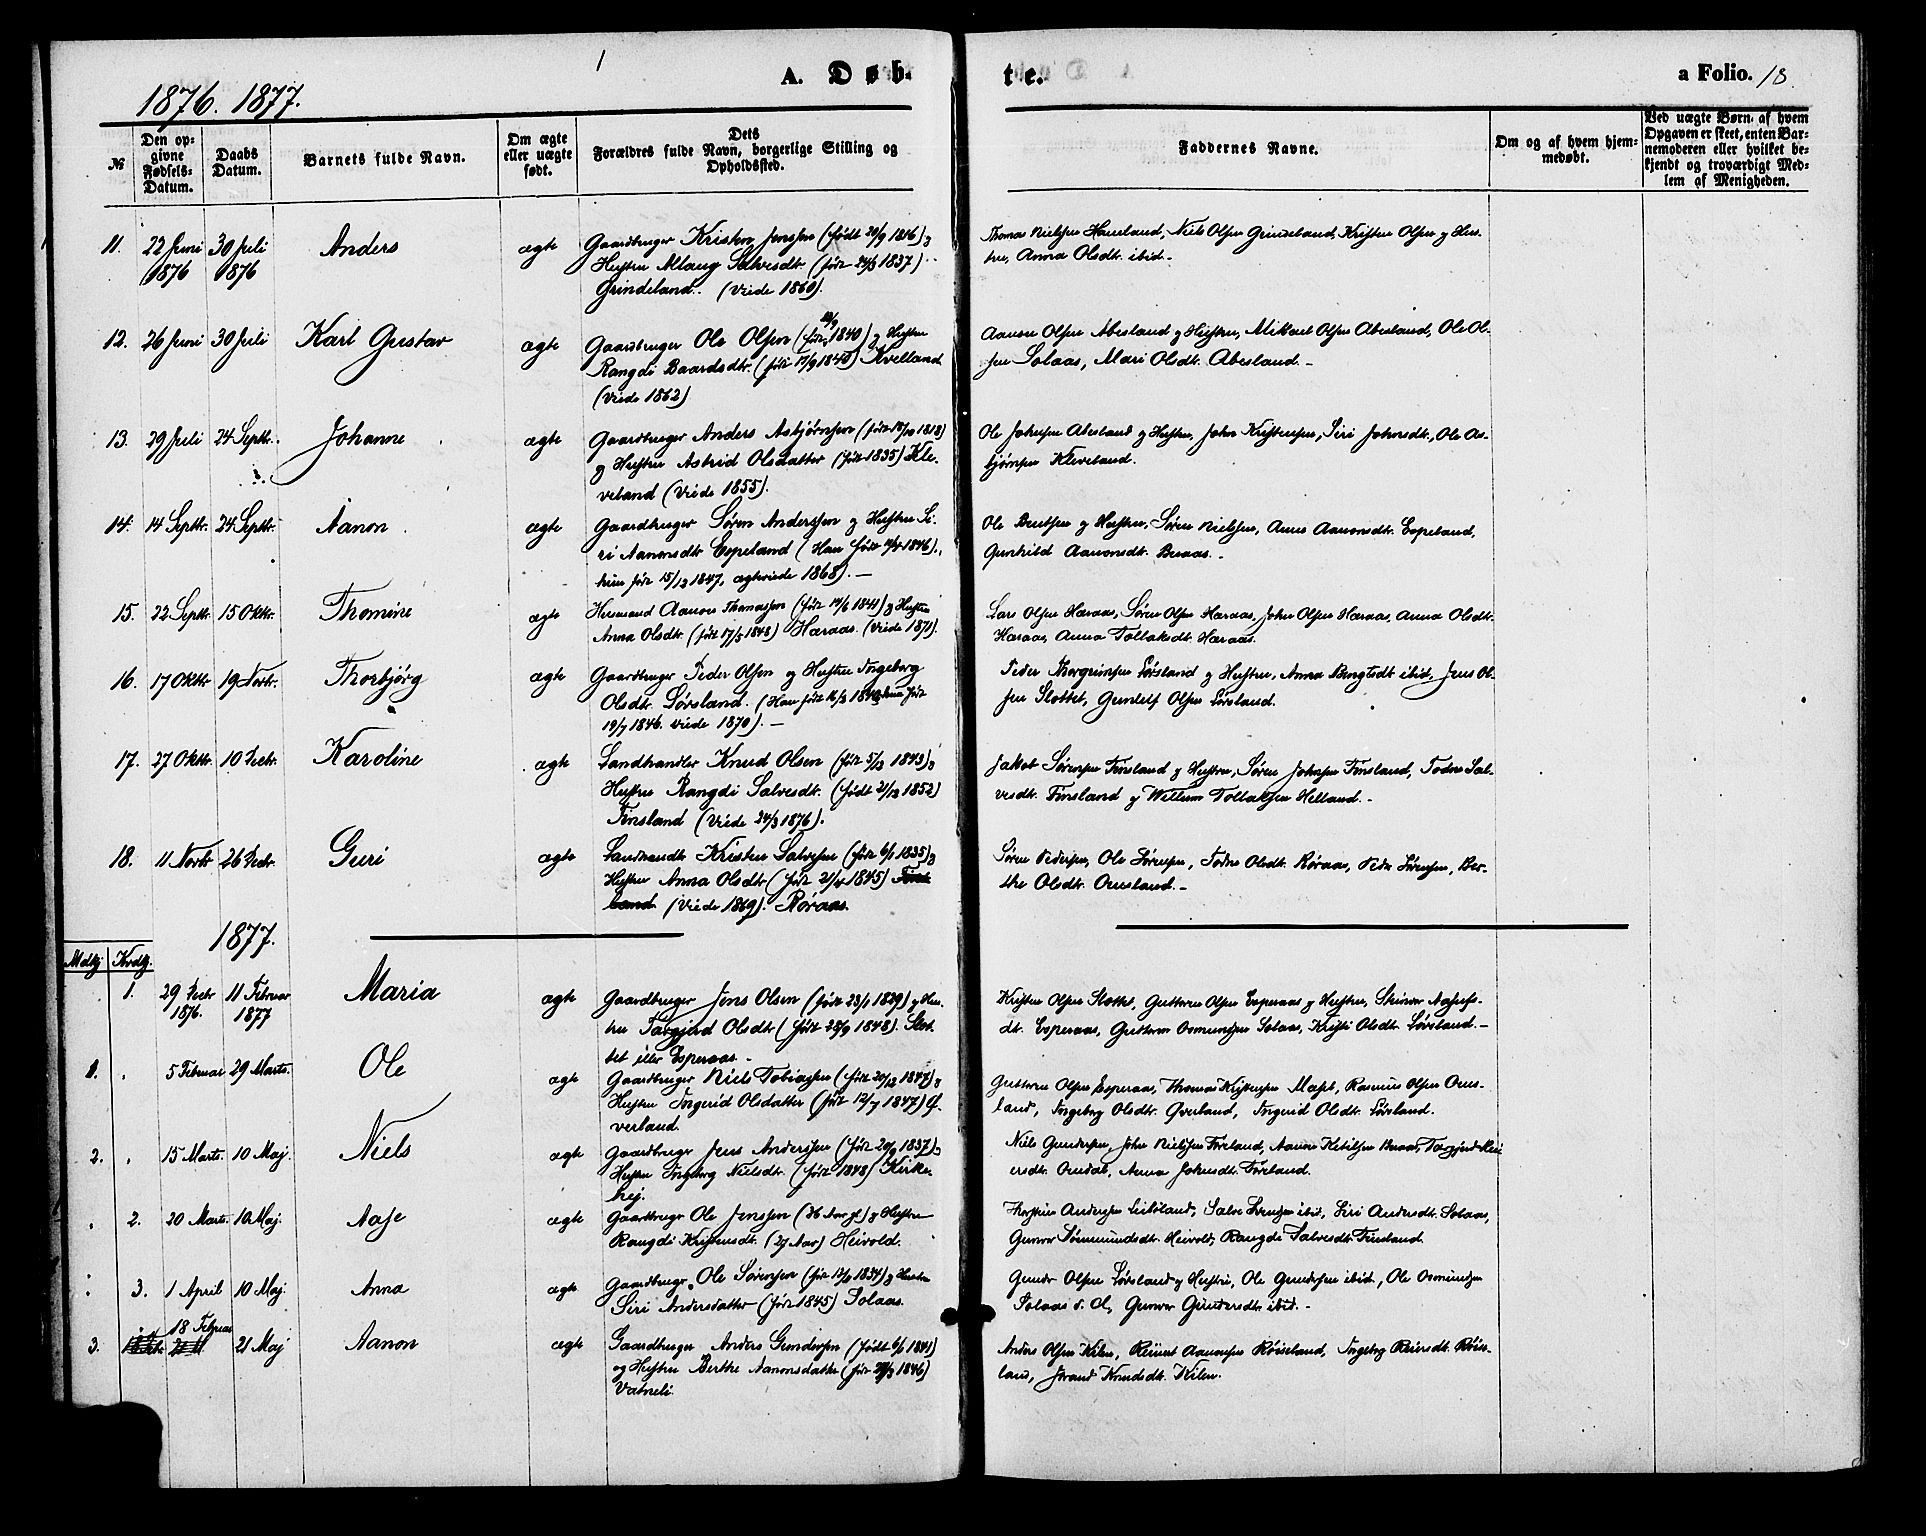 1876. 1877.
1
A. Døb-
te.
a Folio. 18.
№
Den op-
givne
Fødsels-
Datum.
Daabs
Datum.
Barnets fulde Navn.
Om ægte
eller uægte
født.
Dets
Forældres fulde Navn, borgerlige Stilling og
Opholdssted.
Faddernes Navne.
Om og af hvem hjem-
medøbt.
Ved uægte Børn: af hvem
Opgaven er skeet, enten Bar-
nemoderen eller hvilket be-
kjendt og troværdigt Med-
lem af Menigheden.
11. 22 Juni 30 Juli Anders ægte Gaardbruger Kristen Jenssen (født 20/9 1836) og
1876 1876 Hustru Alaug Salvesdt. (født 24/3 1837)
Grindeland. (Viede 1860).
Thomas Nielsen Haueland, Niels Olsen Grindeland, Kristen Olsen og Hus-
tru, Anna Olsdt. ibid.
12. 26 Juni 30 Juli Karl Gustav ægte Gaardbruger Ole Olsen (født 1840) og Hustru
Rangdi Baardsdtr. (født 17/9 1840) Kvelland
(Viede 1862)
Aanon Olsen Abesland og Hustru, Mikael Olsen Abesland, Ole Ol-
sen Solaas, Mari Olsdt. Abesland.
13. 29 Juli 24 Septbr. Johanne ægte Gaardbruger Anders Asbjørnsen (født 1818)
og Hustru Astrid Olsdatter (født 1835) Kle-
veland (Viede 1855).
Ole Johnsen Abesland og Hustru, John Kristensen, Siri Johnsdt., Ole As-
bjørnsen Kleveland.
14. 14 Septbr. 24 Septbr. Aanon ægte Gaardbruger Søren Anderssen og Hustru Si-
ri Aanonsdtr Espeland (Han født 1846).
hun født 15/12 1847, ægteviede 1868).
Ole Berntsen og Hustru, Søren Nielssen, Anne Aanonsdt. Espeland,
Gunhild Aanonsdt. Beraas.
15. 22 Septbr. 15 Oktbr. Thomine ægte Huusmand Aanon Thomassen (født 14/6 1841) og Hustru
Anna Olsdtr. (født 17/5 1848) Haraas. (Viede 1871).
Lars Olsen Haraas, Søren Olsen Haraas, John Olsen Haraas, Anna Olsdt.
Haraas, Anna Tollaksdt. Haraas.
16. 17 Oktbr 19 Novbr. Thorbjørg ægte Gaardbruger Peder Olsen og Hustru Ingeborg
Olsdt. Løvsland. (Han født 16/3 1842, hun født
19/7 1846. viede 1870).
Peder Thorgrimsen Løvsland og Hustru, Anna Bengtsdt ibid, Jens Ol-
sen Slottet, Gundelf Olsen Løvsland.
17. 27 Oktbr. 10 Decbr. Karoline ægte Landhandler Knud Olsen (født 5/12 1843) og
Hustru Rangdi Salvesdt. (født 21/12 1852)
Finsland (Viede 24/3 1876).
Jakob Sørensen Finsland og Hustru, Søren Johnsen Finsland, Todne Sal-
vesdt. Finsland og Willum Tollaksen Helland.
18. 11 Novbr 26 Decbr. Guri ægte Landhandl. Kristen Salvesen (født 6/1 1835) og
Hustru Anna Olsdtr. (født 21/4 1845) Fins-
land. (Viede 1869). Røraas.
Søren Pedersen, Ole Sørensen, Todne Olsdt. Røraas, Peder Sørensen, Ber-
the Olsdt. Omesland.
1877.
Mdkj Kvdkj.
1. 29 Decbr 11 Februar Maria ægte Gaardbruger Jens Olsen (født 23/1 1829) og Hus-
1876. 1877 tru Targjerd Olsdt. (født 28/9 1848). Slot-
tet eller Esperaas.
Kristen Olsen Slottet, Guttorm Olsen Esperaas og Hustru, Skinvor
dt. Esperaas, Guttorm Osmundsen Solaas, Kristi Olsdt. Løvsland.
1. 5 Februar 29 Marts. Ole ægte Gaardbruger Niels Tobiassen (født 20/12 1847) og
Hustru Ingerid Olsdatter (født 12/7 1847) Q-
verland.
Guttorm Olsen Esperaas, Thomas Kristensen, Rasmus Olsen Omes-
land, Ingeborg Olsdt. Qverland, Ingerid Olsdt. Løvsland.
2. 15 Marts. 10 Maj. Niels ægte Gaardbruger Jens Anderssen (født 20/9 1837) og
Hustru Ingeborg Nielsdt. (født 1848) Kirke-
hej.
Niels Gundersen, John Nielssen Foreland, Aanon Ketilsen Beraas, Torgjerd
ersdt. Omdal, Anna Johnsdt. Foreland.
2. 20 Marts. 10 Maj. Aase ægte Gaardbruger Ole Jenssen (36 Aar gl.) og Hustru
Rangdi Kristensdt. (27 Aar) Heivold.
Thorstein Andersen Leilöland, Salve Svensen ibid, Siri Andersdt. Solaas,
Gunvor Sømmundsdt. Heivold, Rangdi Salvesdt. Finsland.
3. 1 April 10 Maj. Anna ægte Gaardbruger Ole Sørensen (født 1834) og Hustru
Siri Andersdatter (født 1845) Solaas.
Gunder Olsen Løvsland og Hustru, Ole Gundersen ibid, Ole Osmundsen
Solaas, Gunvor Gundersdt. ibid.
3. 18 Februar 21 Maj Aanon ægte Gaardbruger Anders Gundersen (født 6/1 1841)
og Hustru Berthe Aanonsdatter (født 1846)
Vatneli.
Anders Olsen Kilen, Reiunt Aanonsen Røiseland, Ingeborg Reiersdt. Røise-
land, Jorand Knudsdt. Kilen.